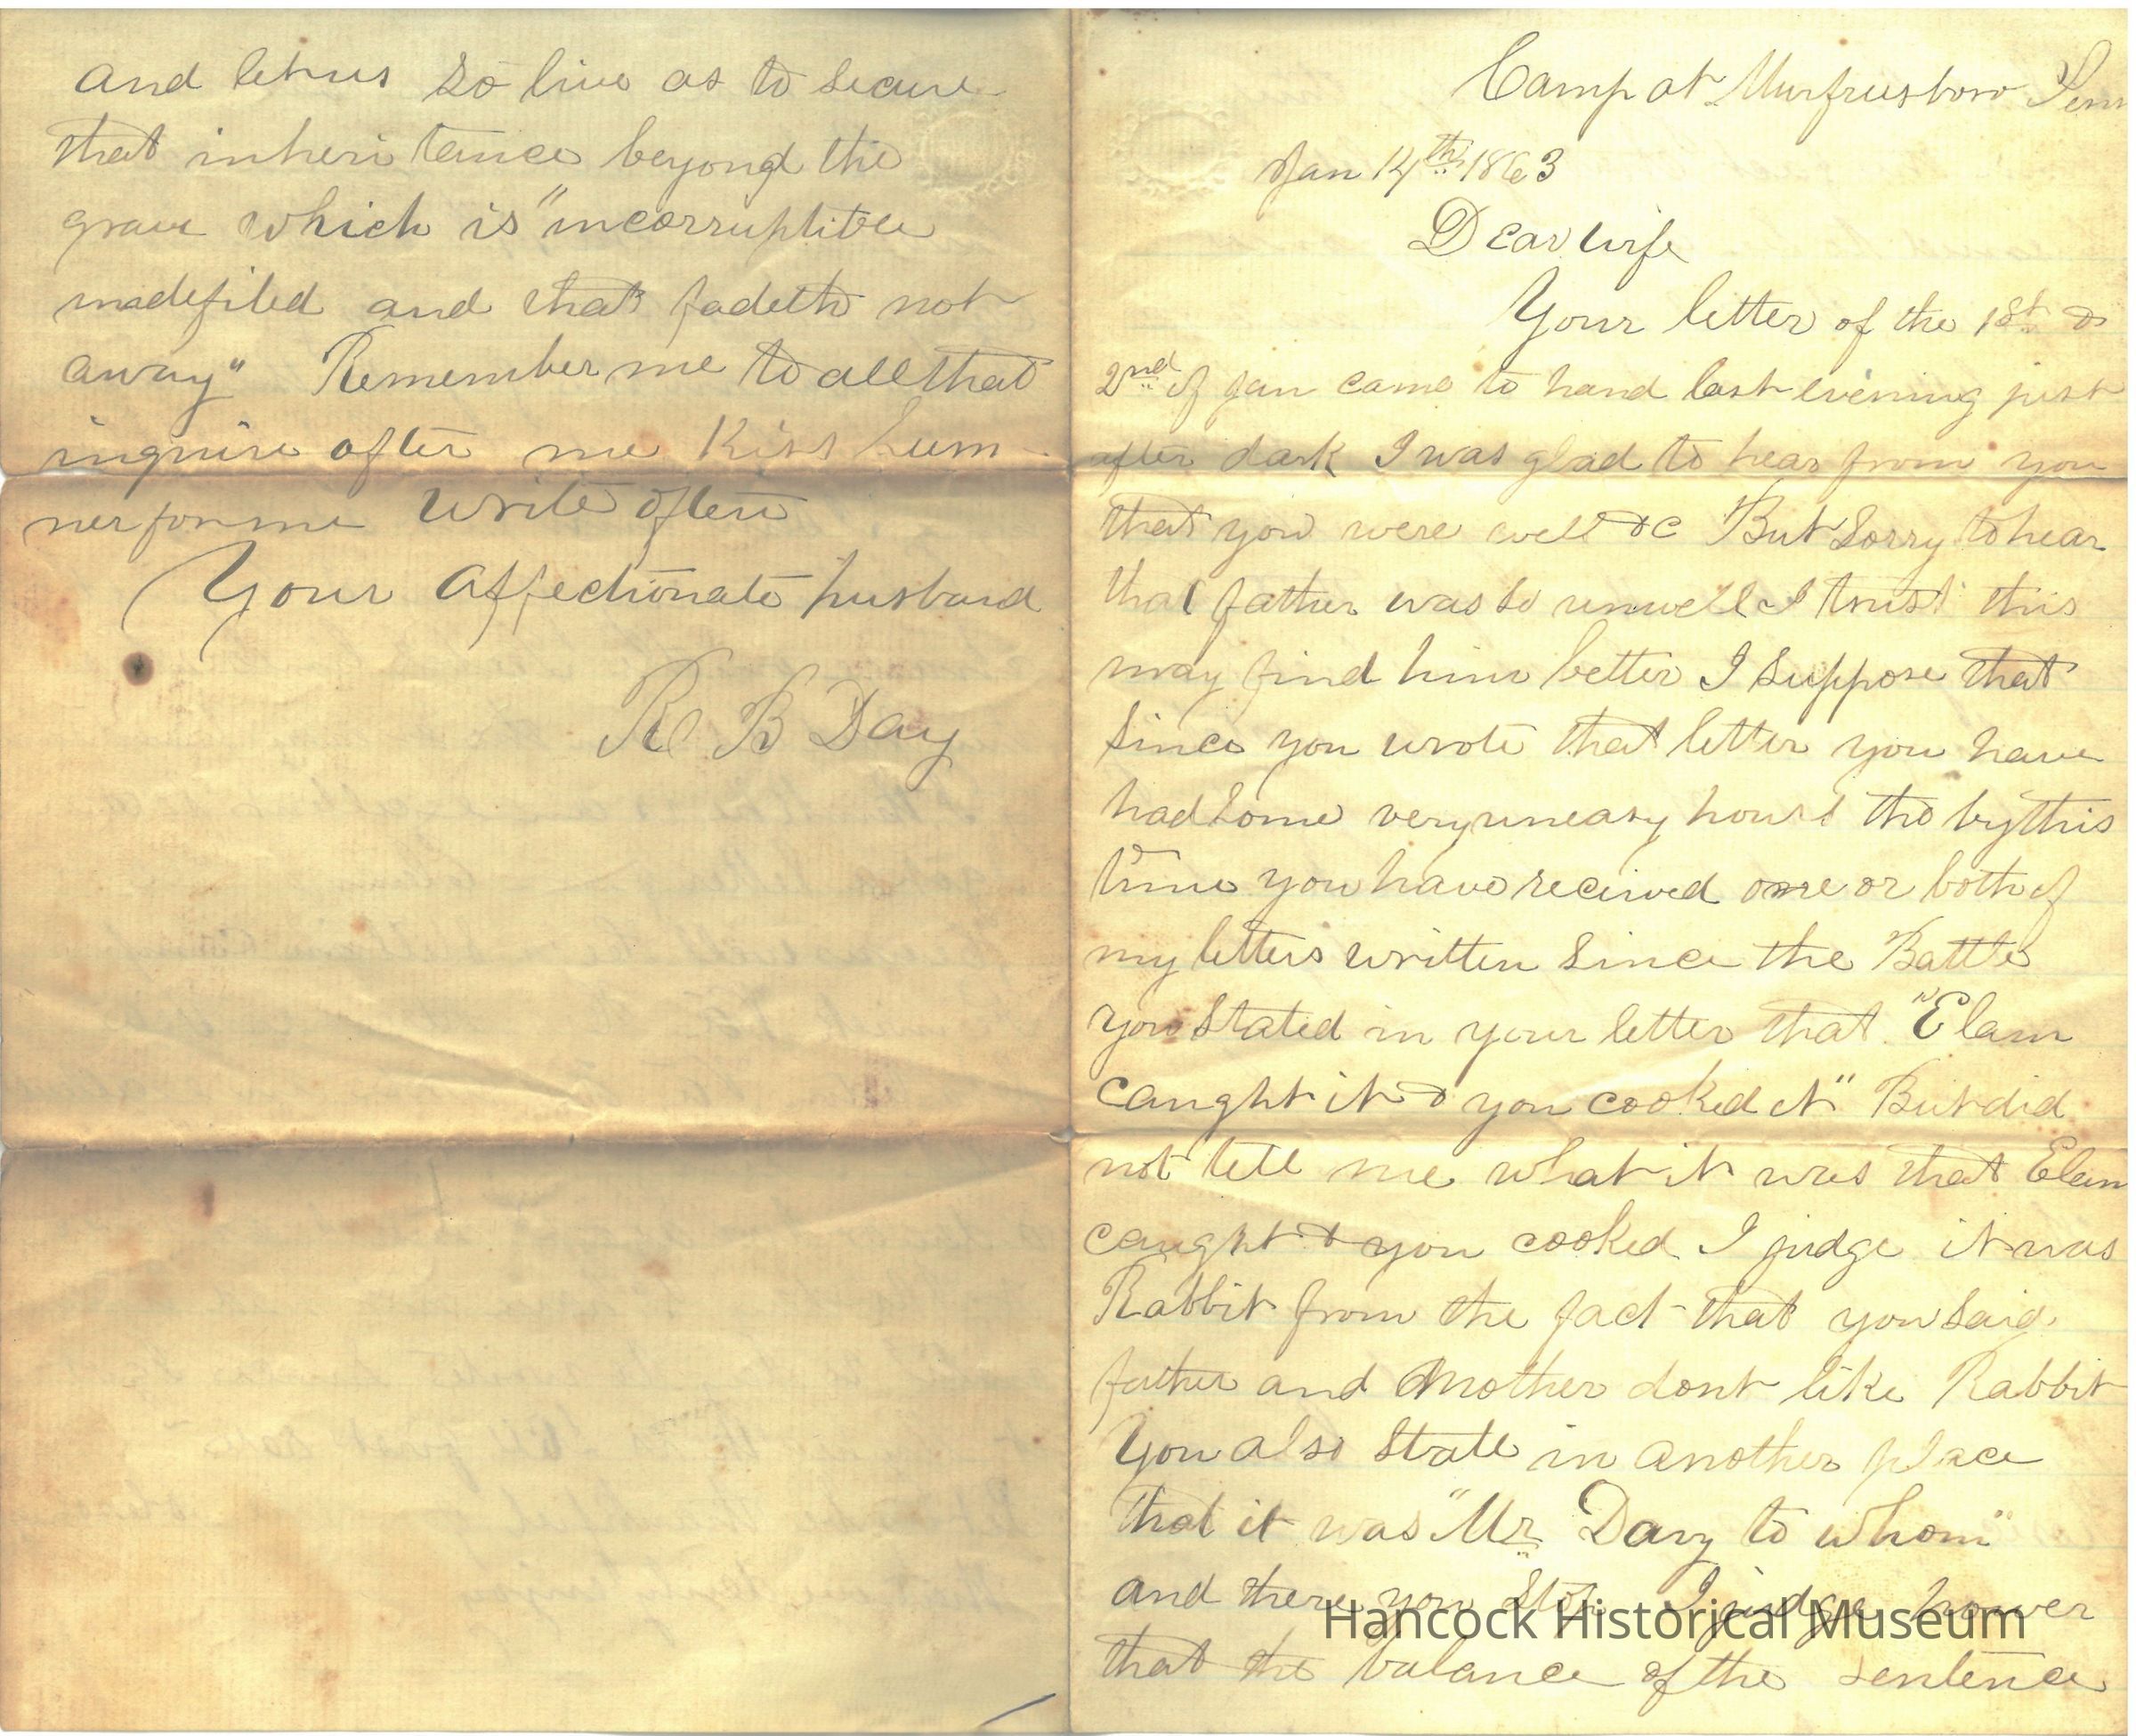 and let us so live as to secure
that inheritance beyond the
grave which is "incorruptible
undefiled and that fadeth not
away" Remember me to all that
inquire after me Kiss Sum-
ner for me write often
Your affectionate husband
R B Day
Camp at Murfreesboro Tenn
Jan 14th 1863
Dear wife
Your letter of the 1st &
2nd of Jan came to hand last evening just
after dark I was glad to hear from you
that you were well &c But Sorry to hear
that father was so unwell I trust this
may find him better I suppose that
since you wrote that letter you have
had some very uneasy hours tho by this
time you have recieved one or both of
my letters written since the Battle
you stated in your letter that "Elam
caught it & you cooked it" But did
not tell me what it was that Elam
caught & you cooked I judge it was
Rabbit from the fact that you said
father and Mother dont like Rabbit
You also state in another place
that it was "Mr Davy to whom"
and there you stop I judge hower
that the balance of the sentence
Hancock Historical Museum